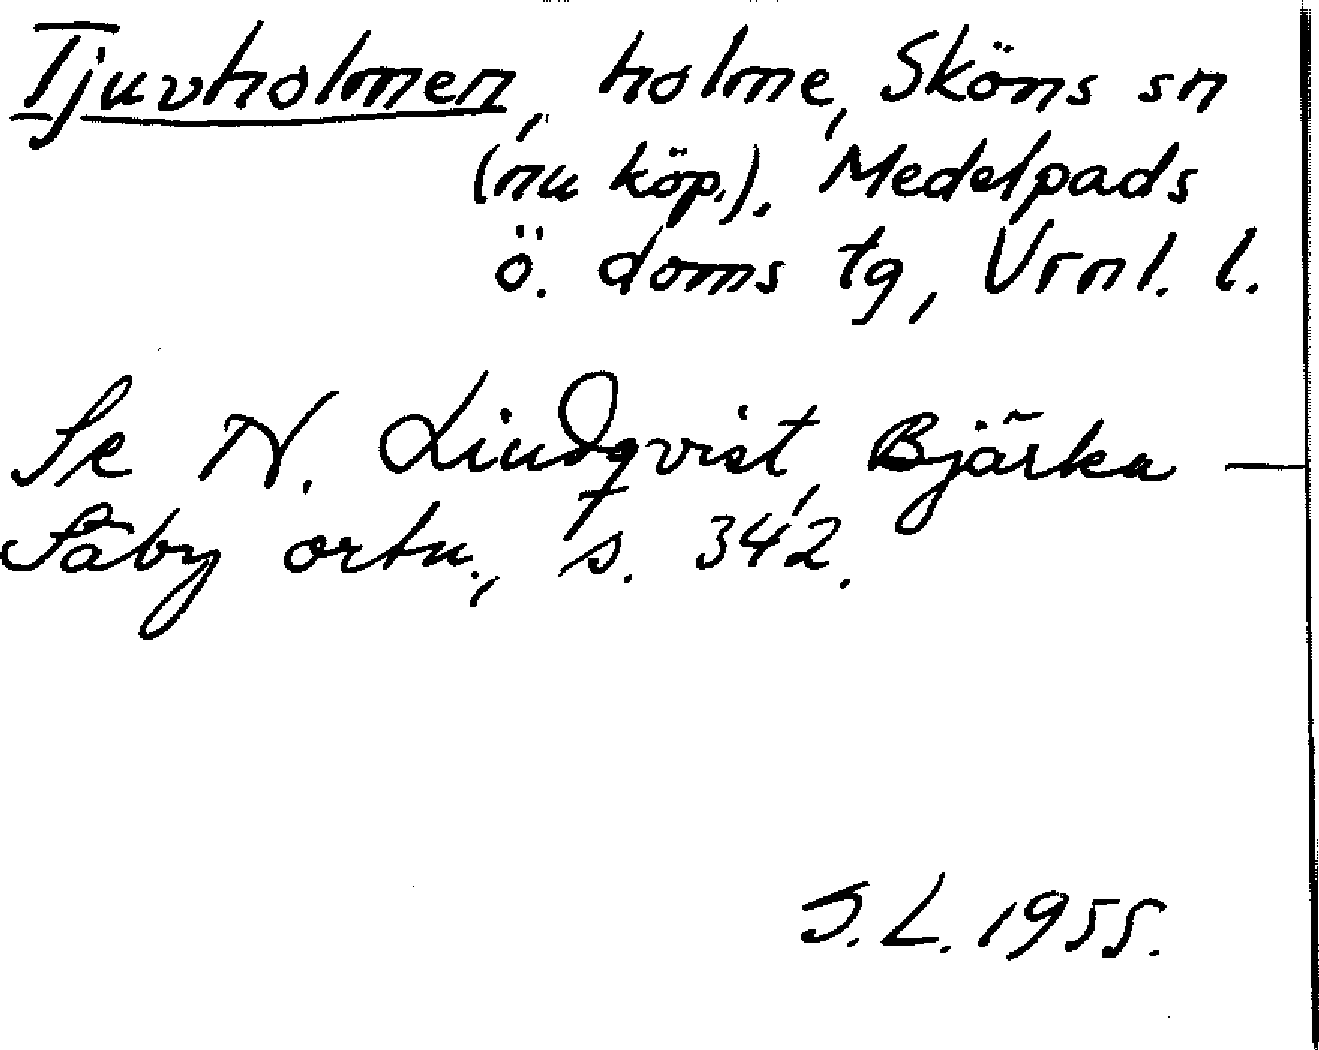 Tjuvholmen, holme, Sköns sn
(nu köp.). Medelpads
ö. doms tg, Vrnl. l.
Se N. Lindqvist, Bjärka —
Säby ortn., s. 342.
J. L. 1955.